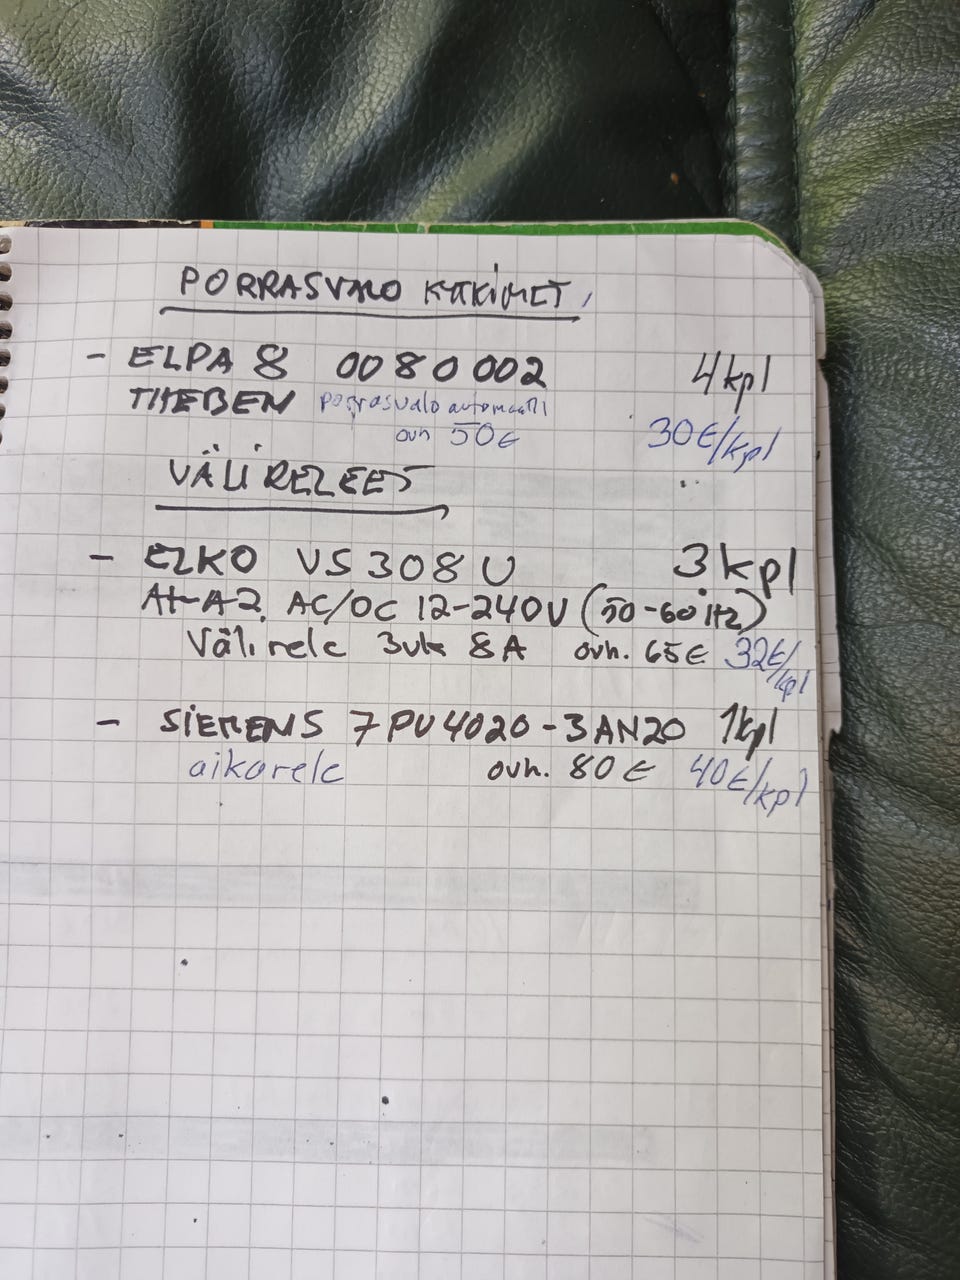 PORRASVALO KYTKIMET
- ELPA 8 0080002 4kpl
THEBEN porrasvalo automaatti
ovh 50€ 30€/kpl
VÄLIRELEET
- ELKO VS308U 3kpl
A1-A2 AC/DC 12-240V (50-60Hz)
Välirele 3vk 8A ovh. 65€ 32€/kpl
- SIEMENS 7PU4020-3AN20 1kpl
aikarele ovh. 80€ 40€/kpl